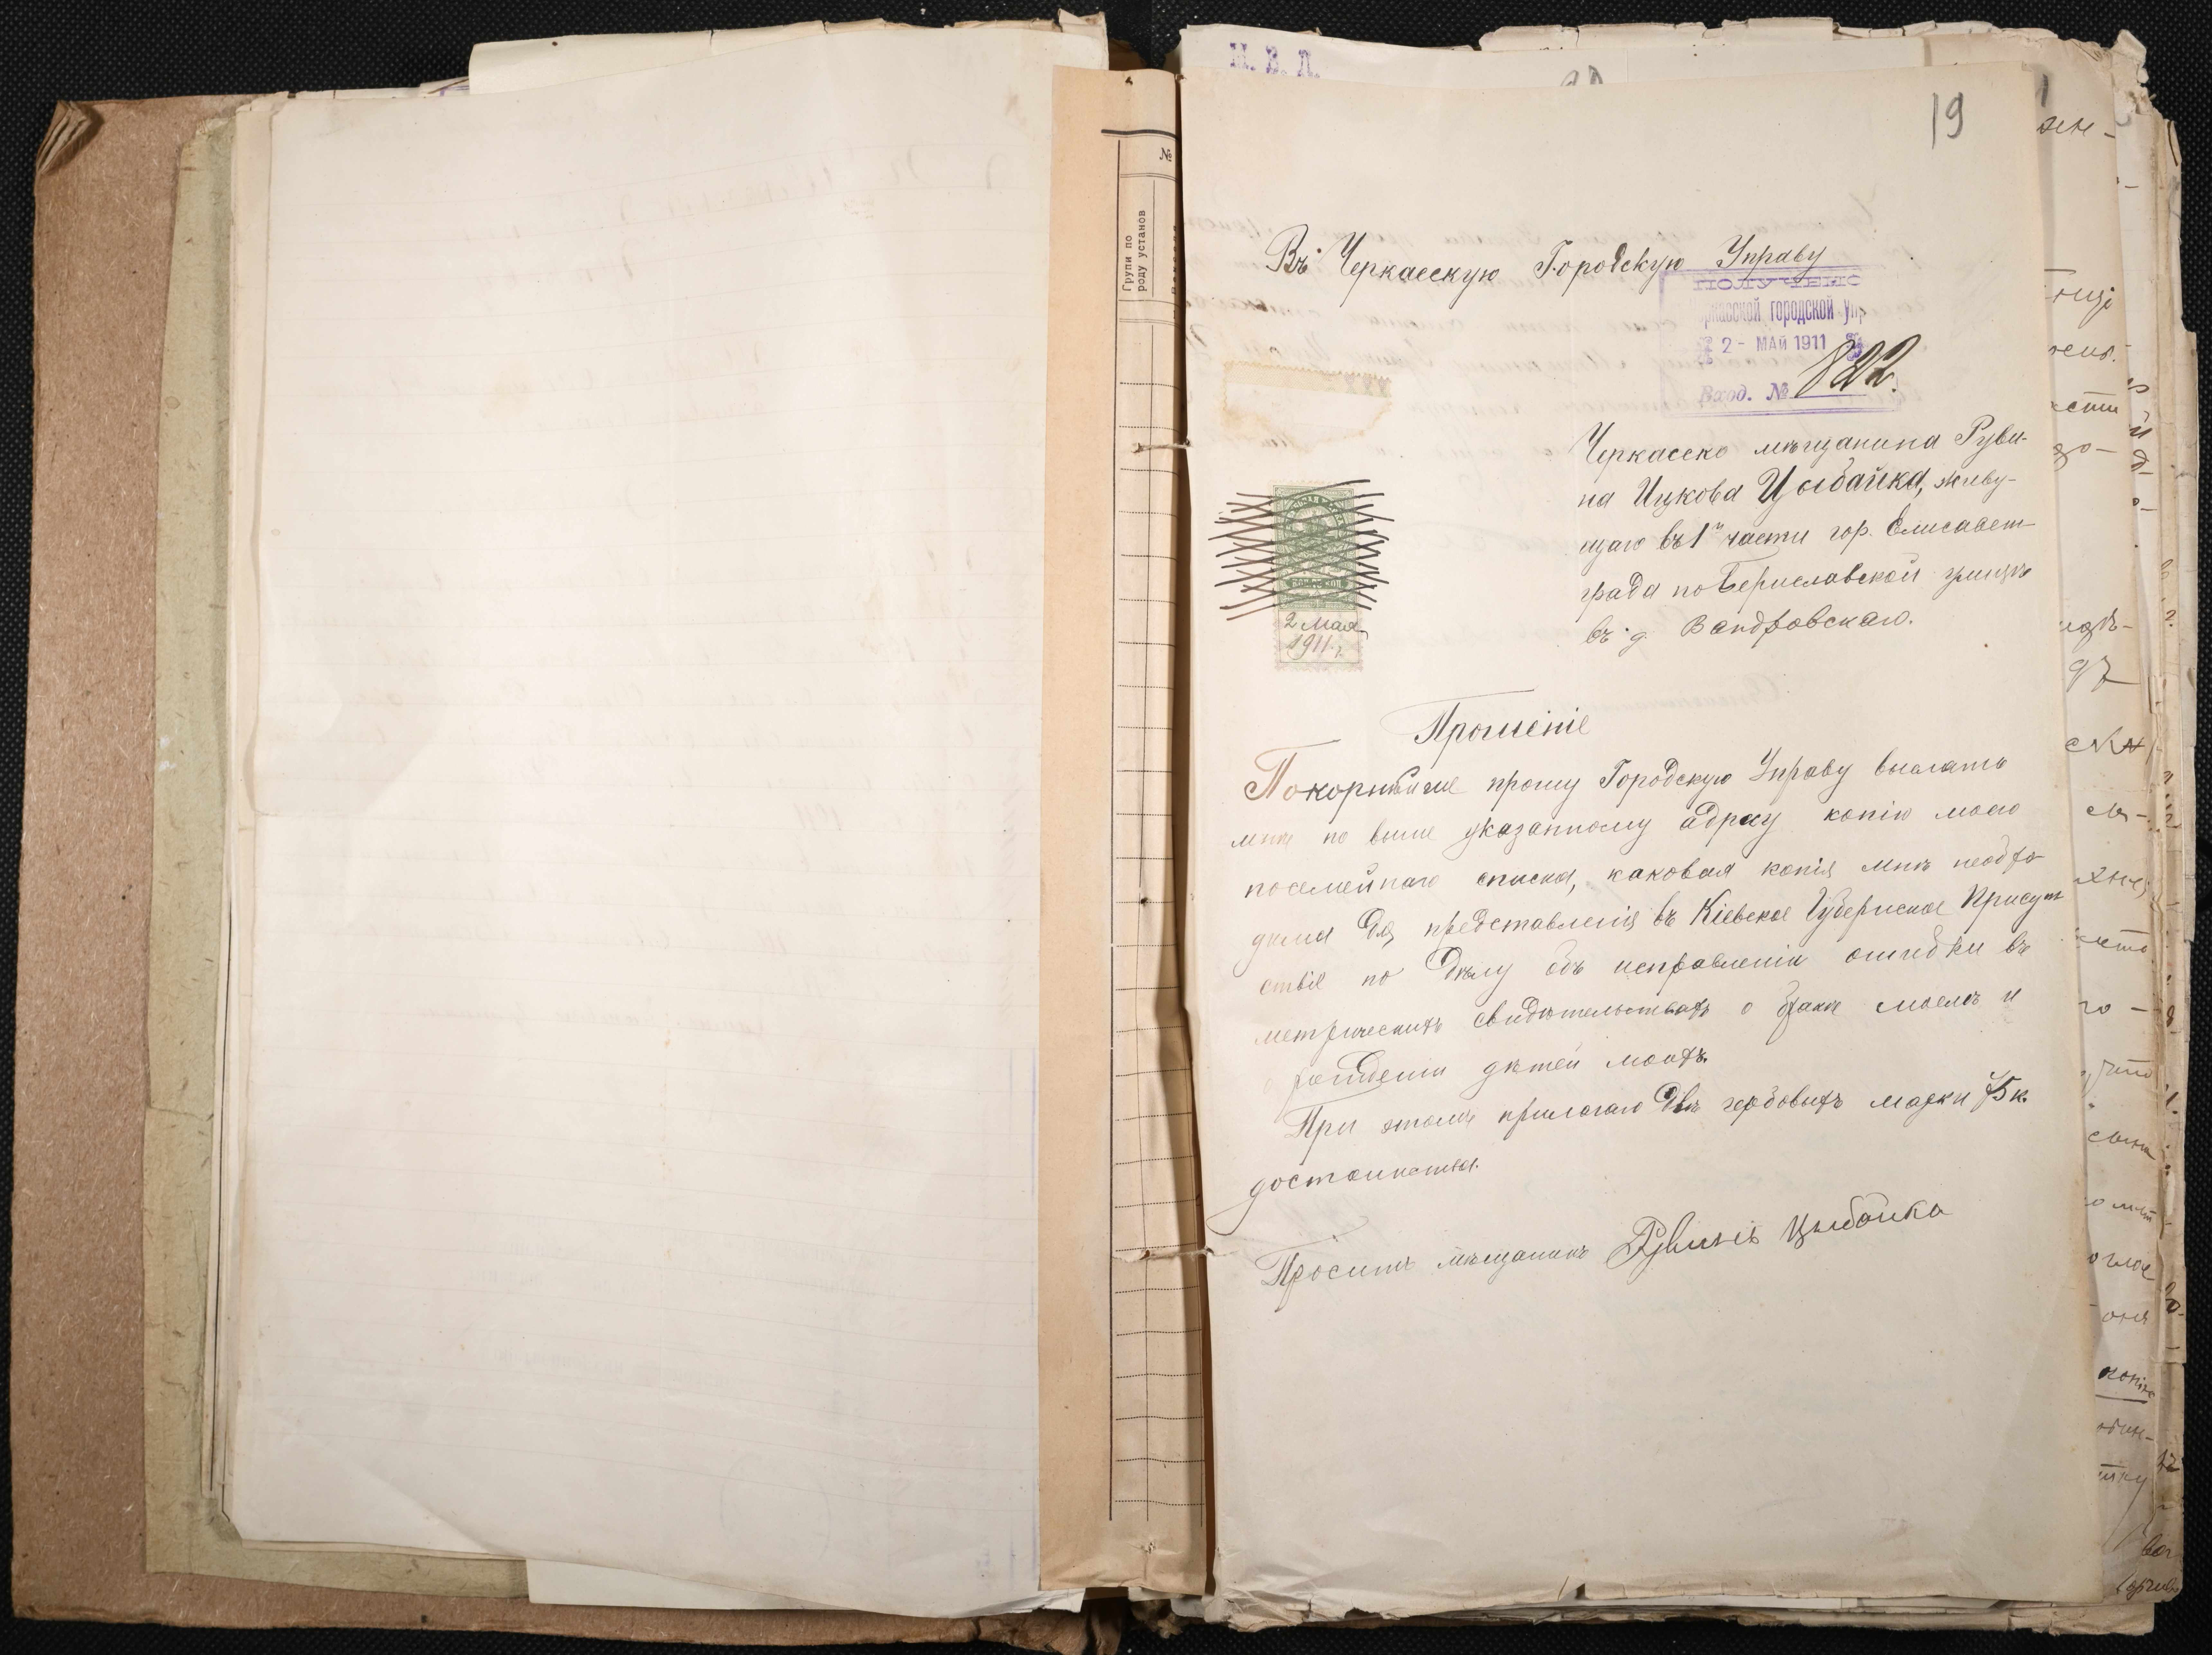 №
Групи по
роду установ
М. В. Д.
19
Въ Черкасскую Городскую Управу
ПОЛУЧЕНО
ркасской городской упр
2 - МАЙ 1911
Вход. № 822.
Черкасско мѣщанина Руви-
на Ицкова Цыбайка, живу-
щаго въ 1й части гор. Елисавет-
града по Бериславской улицѣ
въ д. Вандровскаго.
2 Мая
1911 г.
Прошеніе
Покорнѣйше прошу Городскую Управу выслать
мнѣ по выше указанному адресу копію моего
посемейнаго списка, каковая копія мнѣ необхо-
дима для представленія въ Кіевское Губернское Присут-
ствіе по дѣлу объ исправленіи ошибки въ
метрическихъ свидѣтельствахъ о бракѣ моемъ и
о рожденіи дѣтей моихъ.
При этомъ прилагаю двѣ гербовыхъ марки 75 к.
достоинства.
Проситъ мѣщанинъ Рувинъ Цыбайка